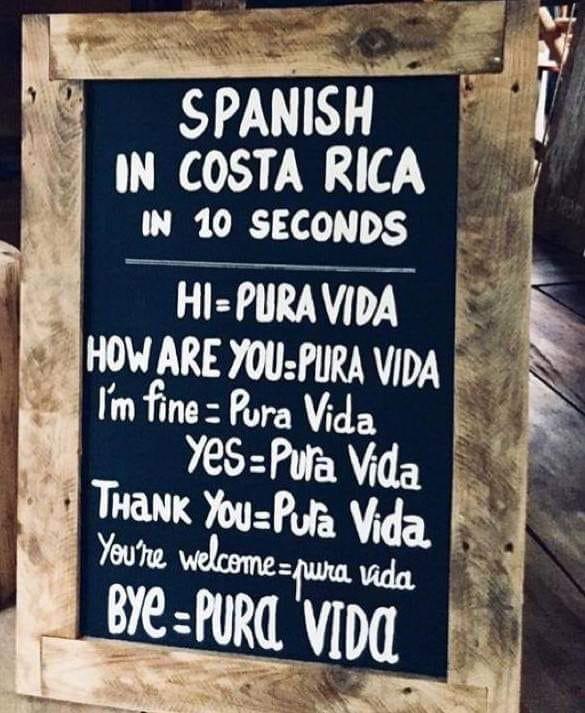 SPANISH
IN COSTA RICA
IN 10 SECONDS
HI=PURA VIDA
HOW ARE YOU=PURA VIDA
I'm fine=Pura Vida
Yes=Pura Vida
THANK YOU=Pura Vida
You're welcome=pura vida
BYe=PURA VIDA